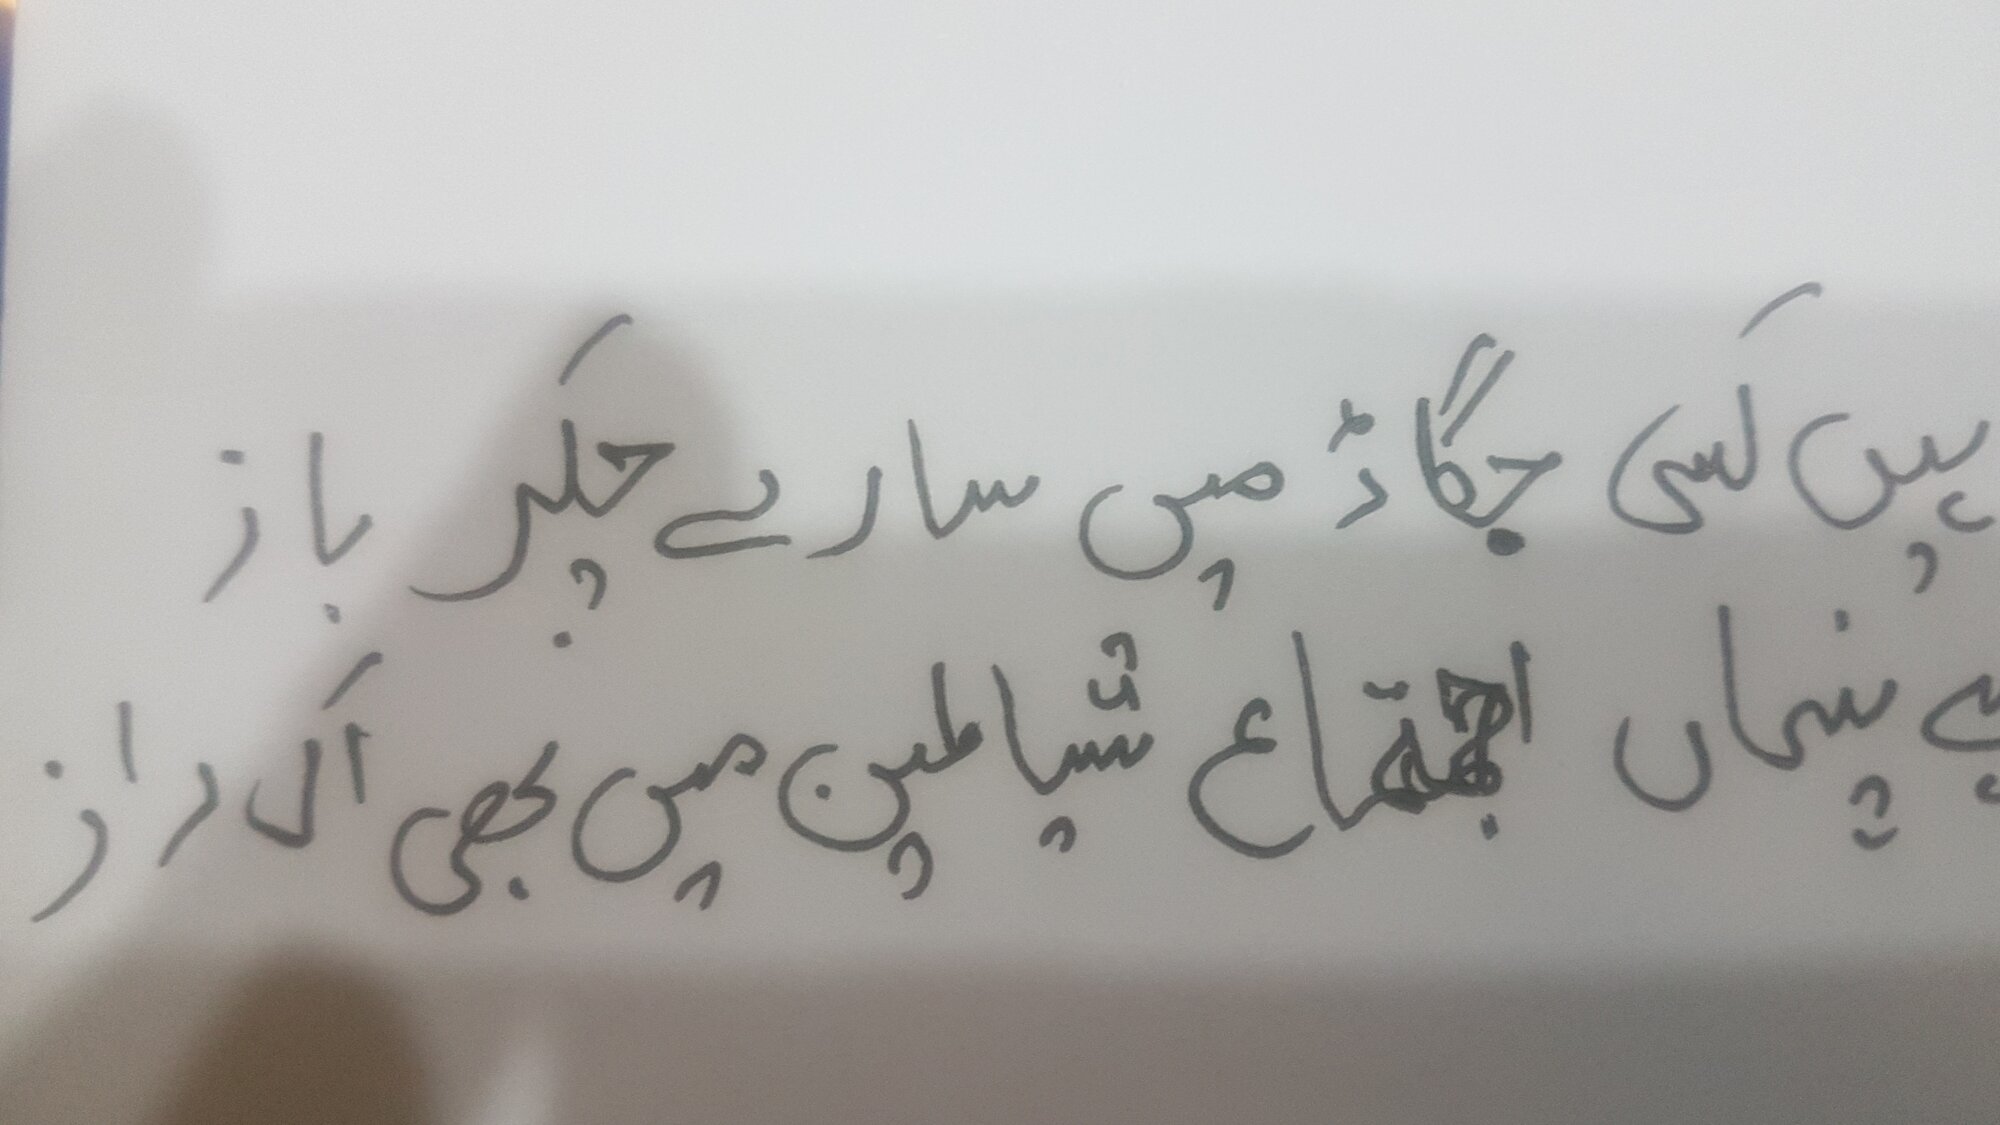 ہیں کسی جگاڑ میں سارے چکر باز
ہے پنہاں اجتماع شیاطین میں بھی اک راز